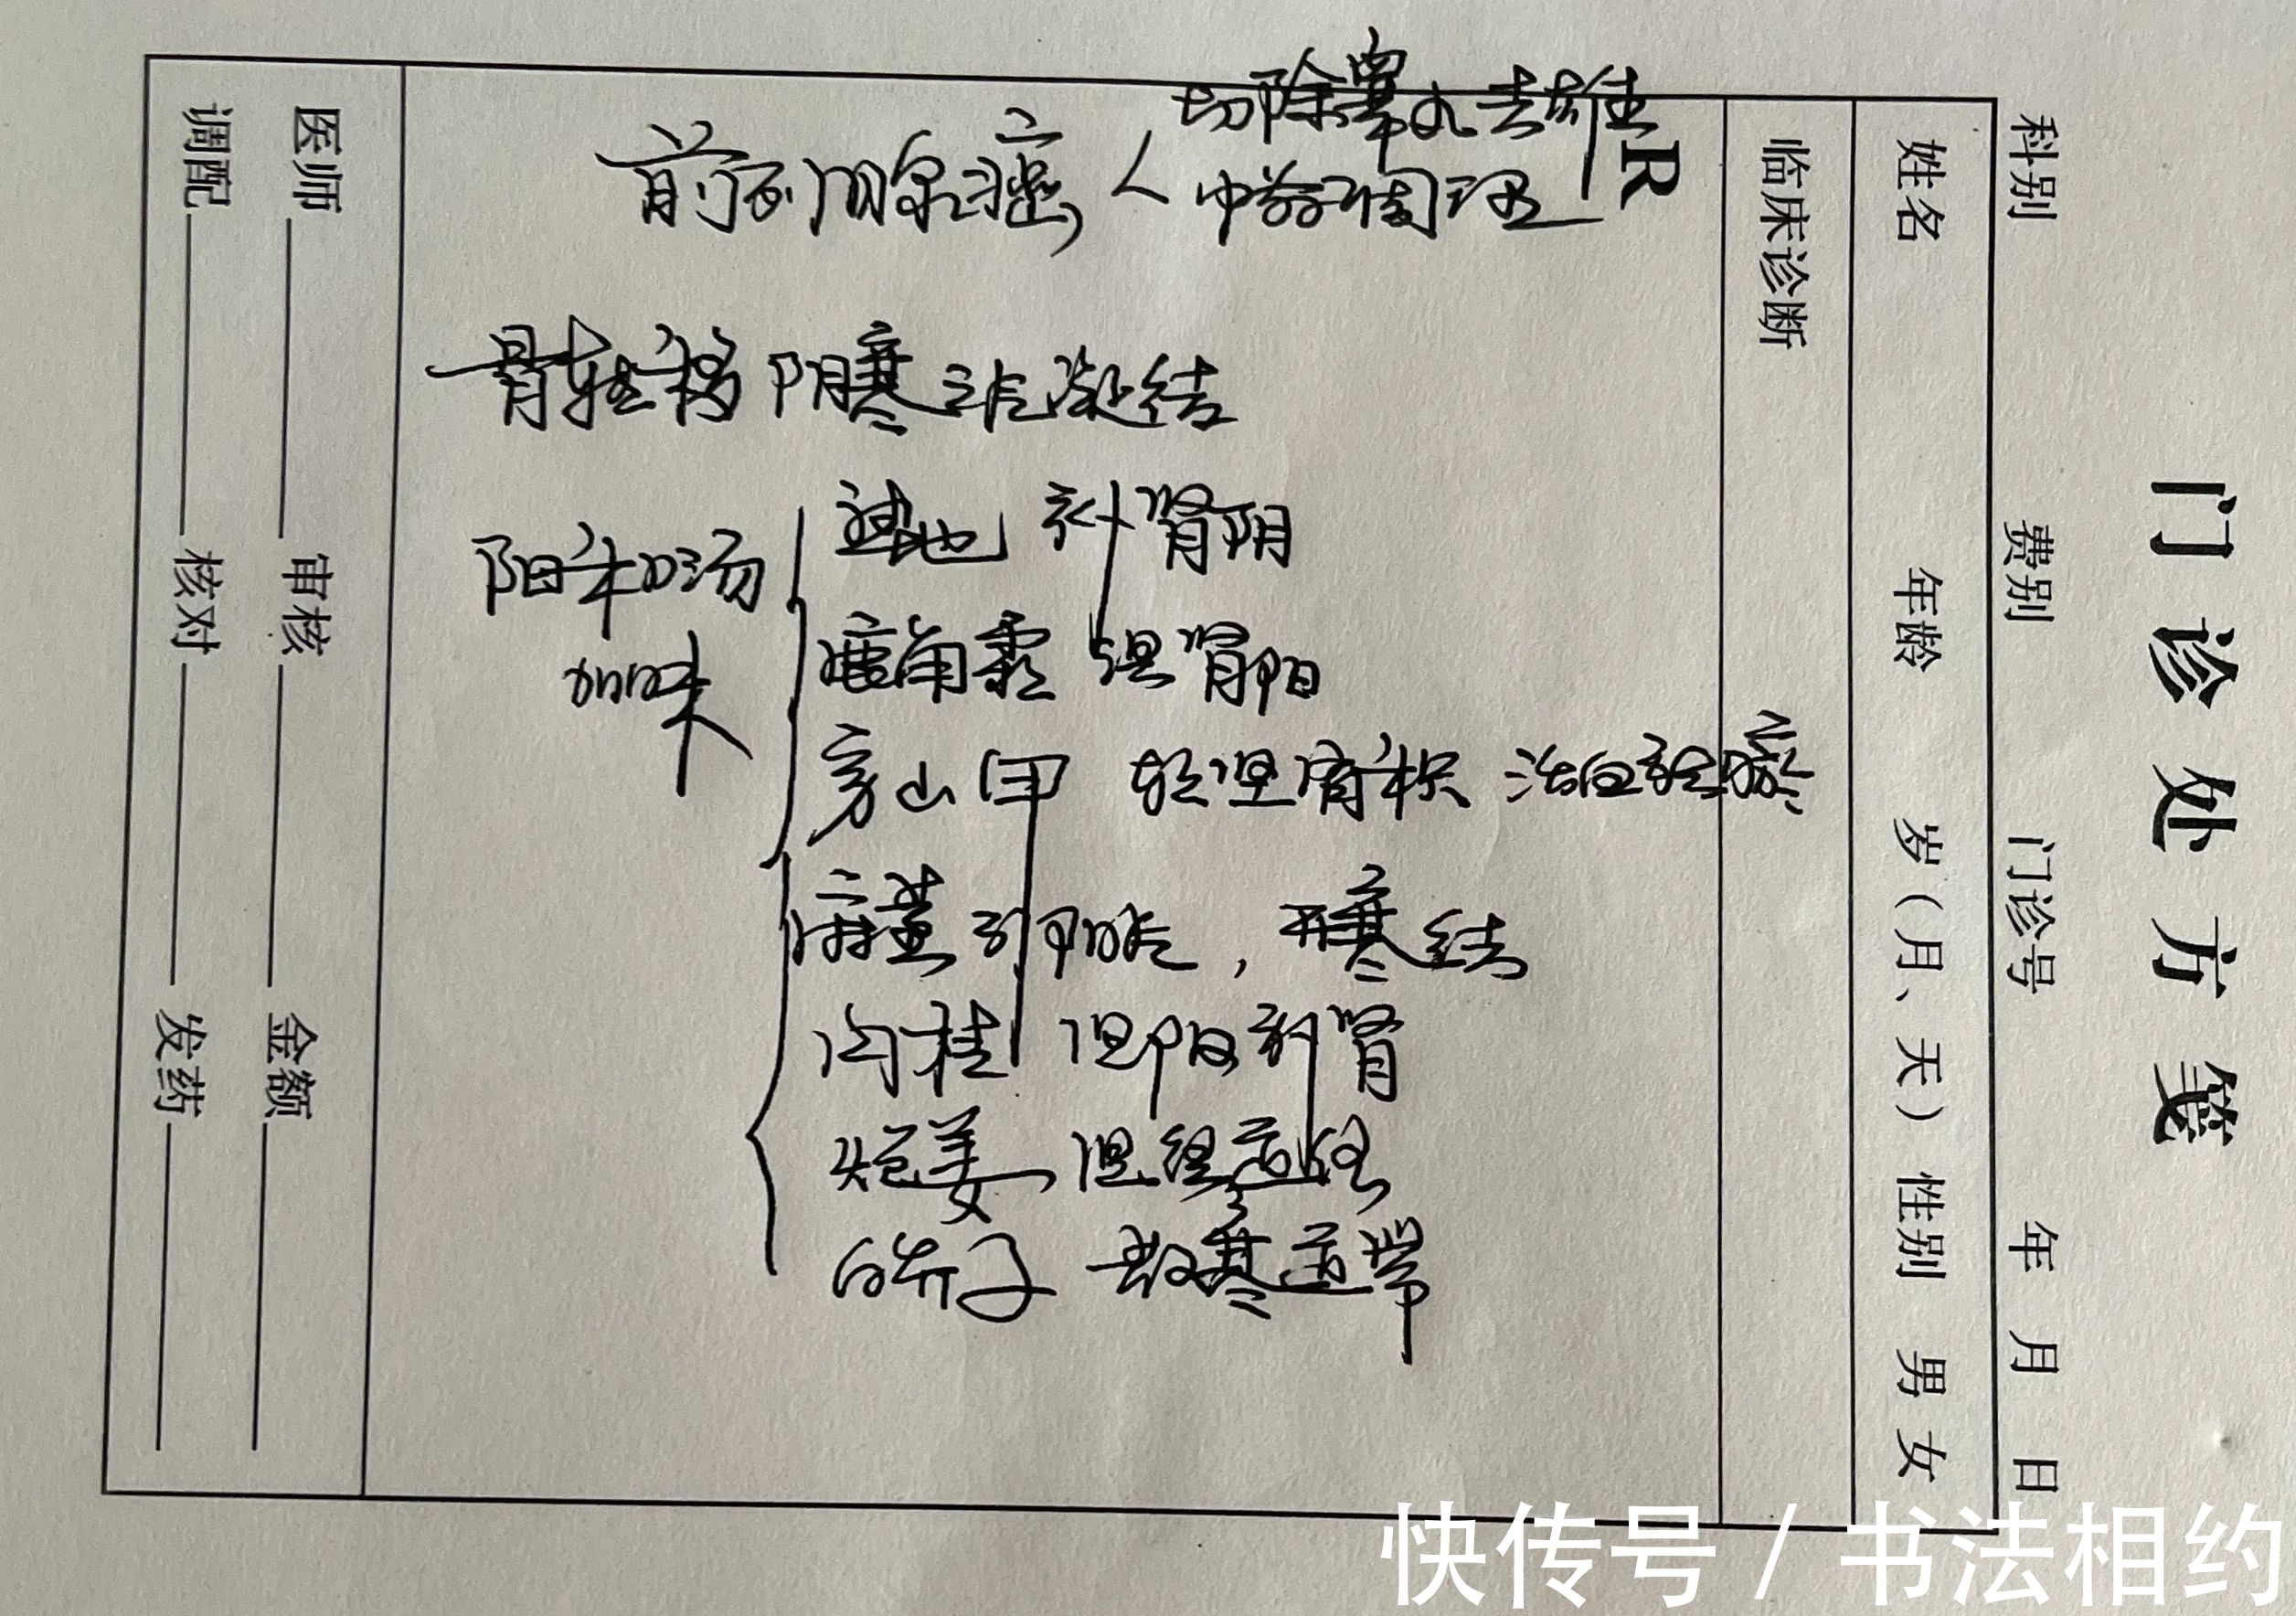 门诊处方笺
科别 费别 门诊号 年 月 日
姓名 年龄 岁（月、天） 性别 男 女
临床诊断
R
切除睾丸去雄
前列腺癌 中药调理
骨转移 阴寒之气凝结
阳和汤
加味
熟地 补肾阴
鹿角霜 温肾阳
穿山甲 软坚消积 活血
麻黄 引阳气，开寒结
肉桂 温阳补肾
炮姜 温经通络
白芥子 散寒通滞
医师 审核 金额
调配 核对 发药
快传号 / 书法相约